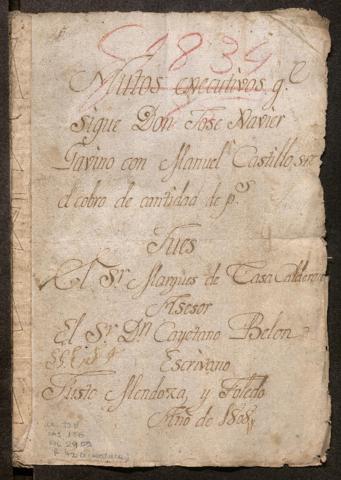 1834
Autos executivos q.e
Sigue Don Jose Xavier
Gavino con Manuel Castillo sre
el cobro de cantidad de p.s
Jues
El Sr. Marques de Casa Calderon
Asesor
El Sr. Dn Cayetano Belon
Escrivano
Justo Mendoza, y Toledo
Año de 1808,,